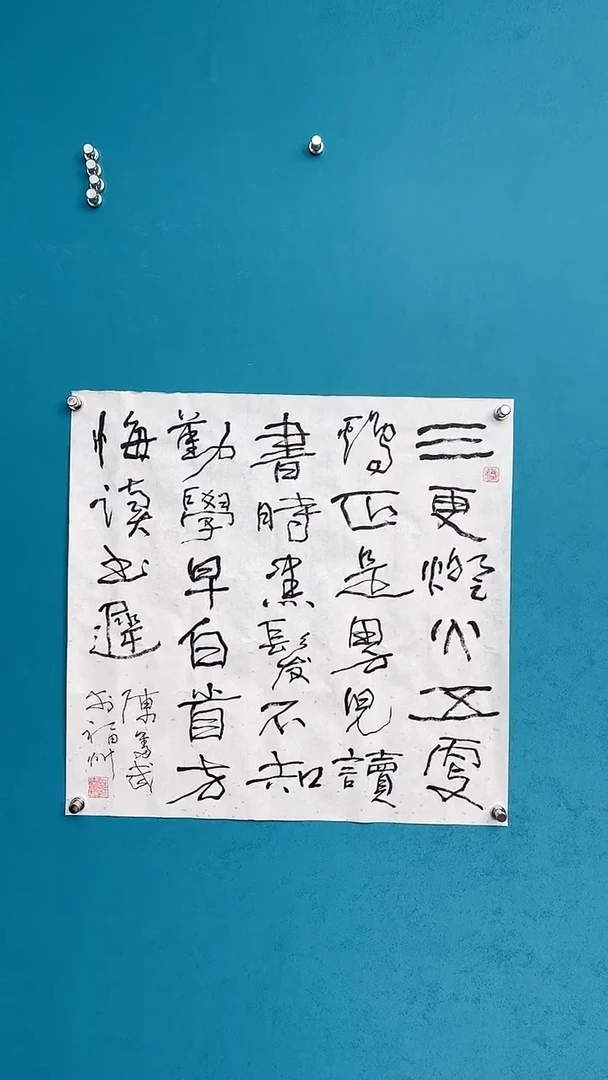 三更燈火五更
鷄正是男兒讀
書時黑髮不知
勤學早白首方
悔读书遲
陳
於福州